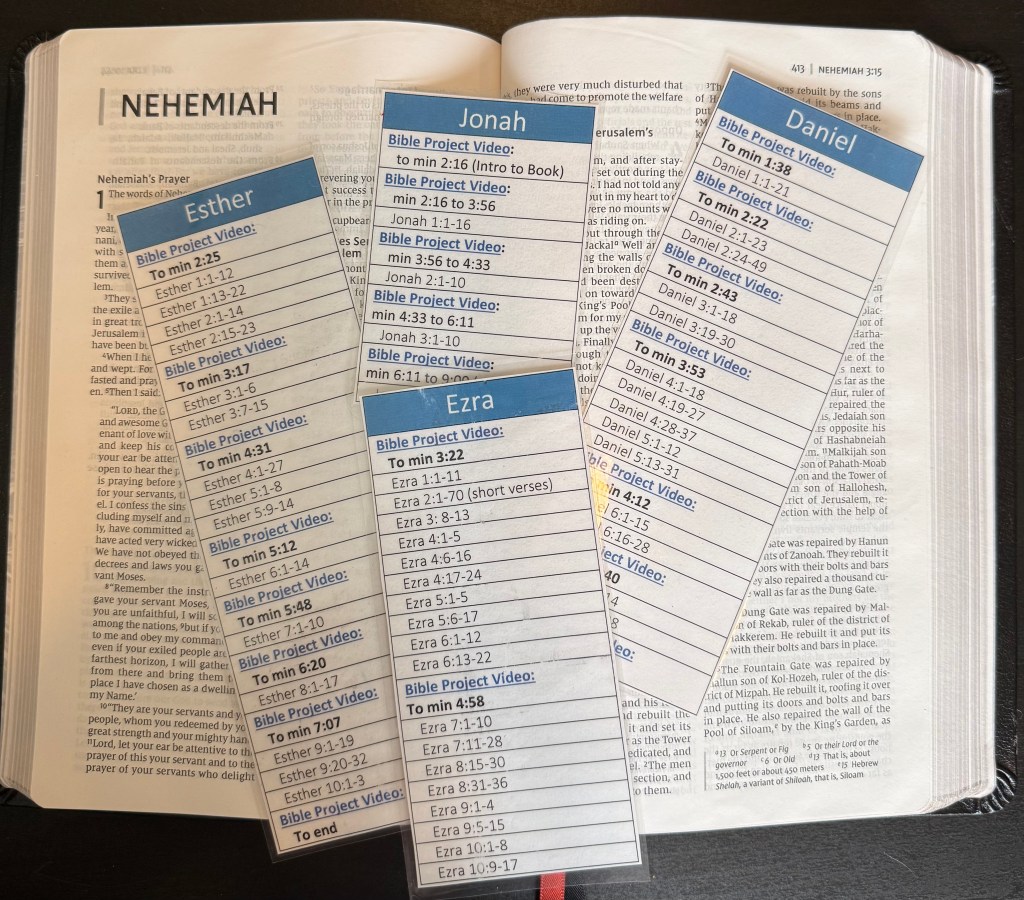 NEHEMIAH
Nehemiah's Prayer
1 The words of
They s
the exile a
in great tro
Jerusalem
have been bu
⁴When I he
and wept. For
fasted and pray
en. ⁵Then I said:
"LORD, the G
and awesome G
enant of love wi
and keep his co
your ear be atten
open to hear the p
is praying before y
for your servants, t
el. I confess the sins
cluding myself and m
ly, have committed ag
have acted very wicked
We have not obeyed th
decrees and laws you g
vant Moses.
⁸"Remember the instr
gave your servant Moses,
you are unfaithful, I will sc
among the nations, ⁹but if yo
to me and obey my comman
even if your exiled people are
farthest horizon, I will gather
from there and bring them t
place I have chosen as a dwellin
my Name.'
¹⁰"They are your servants and y
people, whom you redeemed by yo
great strength and your mighty han
¹¹Lord, let your ear be attentive to th
prayer of this your servant and to the
prayer of your servants who delight
Esther
Bible Project Video:
To min 2:25
Esther 1:1-12
Esther 1:13-22
Esther 2:1-14
Esther 2:15-23
Bible Project Video:
To min 3:17
Esther 3:1-6
Esther 3:7-15
Bible Project Video:
To min 4:31
Esther 4:1-27
Esther 5:1-8
Esther 5:9-14
Bible Project Video:
To min 5:12
Esther 6:1-14
Bible Project Video:
To min 5:48
Esther 7:1-10
Bible Project Video:
To min 6:20
Esther 8:1-17
Bible Project Video:
To min 7:07
Esther 9:1-19
Esther 9:20-32
Esther 10:1-3
Bible Project Video:
To end
Jonah
Bible Project Video:
to min 2:16 (Intro to Book)
Bible Project Video:
min 2:16 to 3:56
Jonah 1:1-16
Bible Project Video:
min 3:56 to 4:33
Jonah 2:1-10
Bible Project Video:
min 4:33 to 6:11
Jonah 3:1-10
Bible Project Video:
min 6:11 to 9:00
Ezra
Bible Project Video:
To min 3:22
Ezra 1:1-11
Ezra 2:1-70 (short verses)
Ezra 3: 8-13
Ezra 4:1-5
Ezra 4:6-16
Ezra 4:17-24
Ezra 5:1-5
Ezra 5:6-17
Ezra 6:1-12
Ezra 6:13-22
Bible Project Video:
To min 4:58
Ezra 7:1-10
Ezra 7:11-28
Ezra 8:15-30
Ezra 8:31-36
Ezra 9:1-4
Ezra 9:5-15
Ezra 10:1-8
Ezra 10:9-17
they were very much disturbed that
had come to promote the welfare
erusalem's
m, and after stay-
set out during the
. I had not told any
out in my heart to
ere no mounts w
as riding on.
out through the
Jackal Well ar
Daniel
Bible Project Video:
To min 1:38
Daniel 1:1-21
Bible Project Video:
To min 2:22
Daniel 2:1-23
Daniel 2:24-49
Bible Project Video:
To min 2:43
Daniel 3:1-18
Daniel 3:19-30
Bible Project Video:
To min 3:53
Daniel 4:1-18
Daniel 4:19-27
Daniel 4:28-37
Daniel 5:1-12
Daniel 5:13-31
ible Project Video:
min 4:12
6:1-15
6:16-28
ject Video:
40
14
8
deo:
413 | NEHEMIAH 3:15
was rebuilt by the sons
its beams and
in place.
repaired the
Jedaiah son
rs opposite his
of Hashabneiah
m. ¹¹Malkijah son
son of Pahath-Moab
on and the Tower of
m son of Hallohesh,
rict of Jerusalem, re-
ection with the help of
ate was repaired by Hanun
nts of Zanoah. They rebuilt it
oors with their bolts and bars
ey also repaired a thousand cu-
e wall as far as the Dung Gate.
Dung Gate was repaired by Mal-
n of Rekab, ruler of the district of
akkerem. He rebuilt it and put its
with their bolts and bars in place.
The Fountain Gate was repaired by
allun son of Kol-Hozeh, ruler of the dis-
rict of Mizpah. He rebuilt it, roofing it over
and putting its doors and bolts and bars
in place. He also repaired the wall of the
Pool of Siloam, by the King's Garden, as
and his
d rebuilt the
it and set its
as the Tower
edicated, and
el. ²The men
section, and
o them.
ᵃ13 Or Serpent or Fig ᵇ5 Or their Lord or the
governor ᶜ6 Or Old ᵈ13 That is, about
1,500 feet or about 450 meters ᵉ15 Hebrew
Shelah, a variant of Shiloah, that is, Siloam